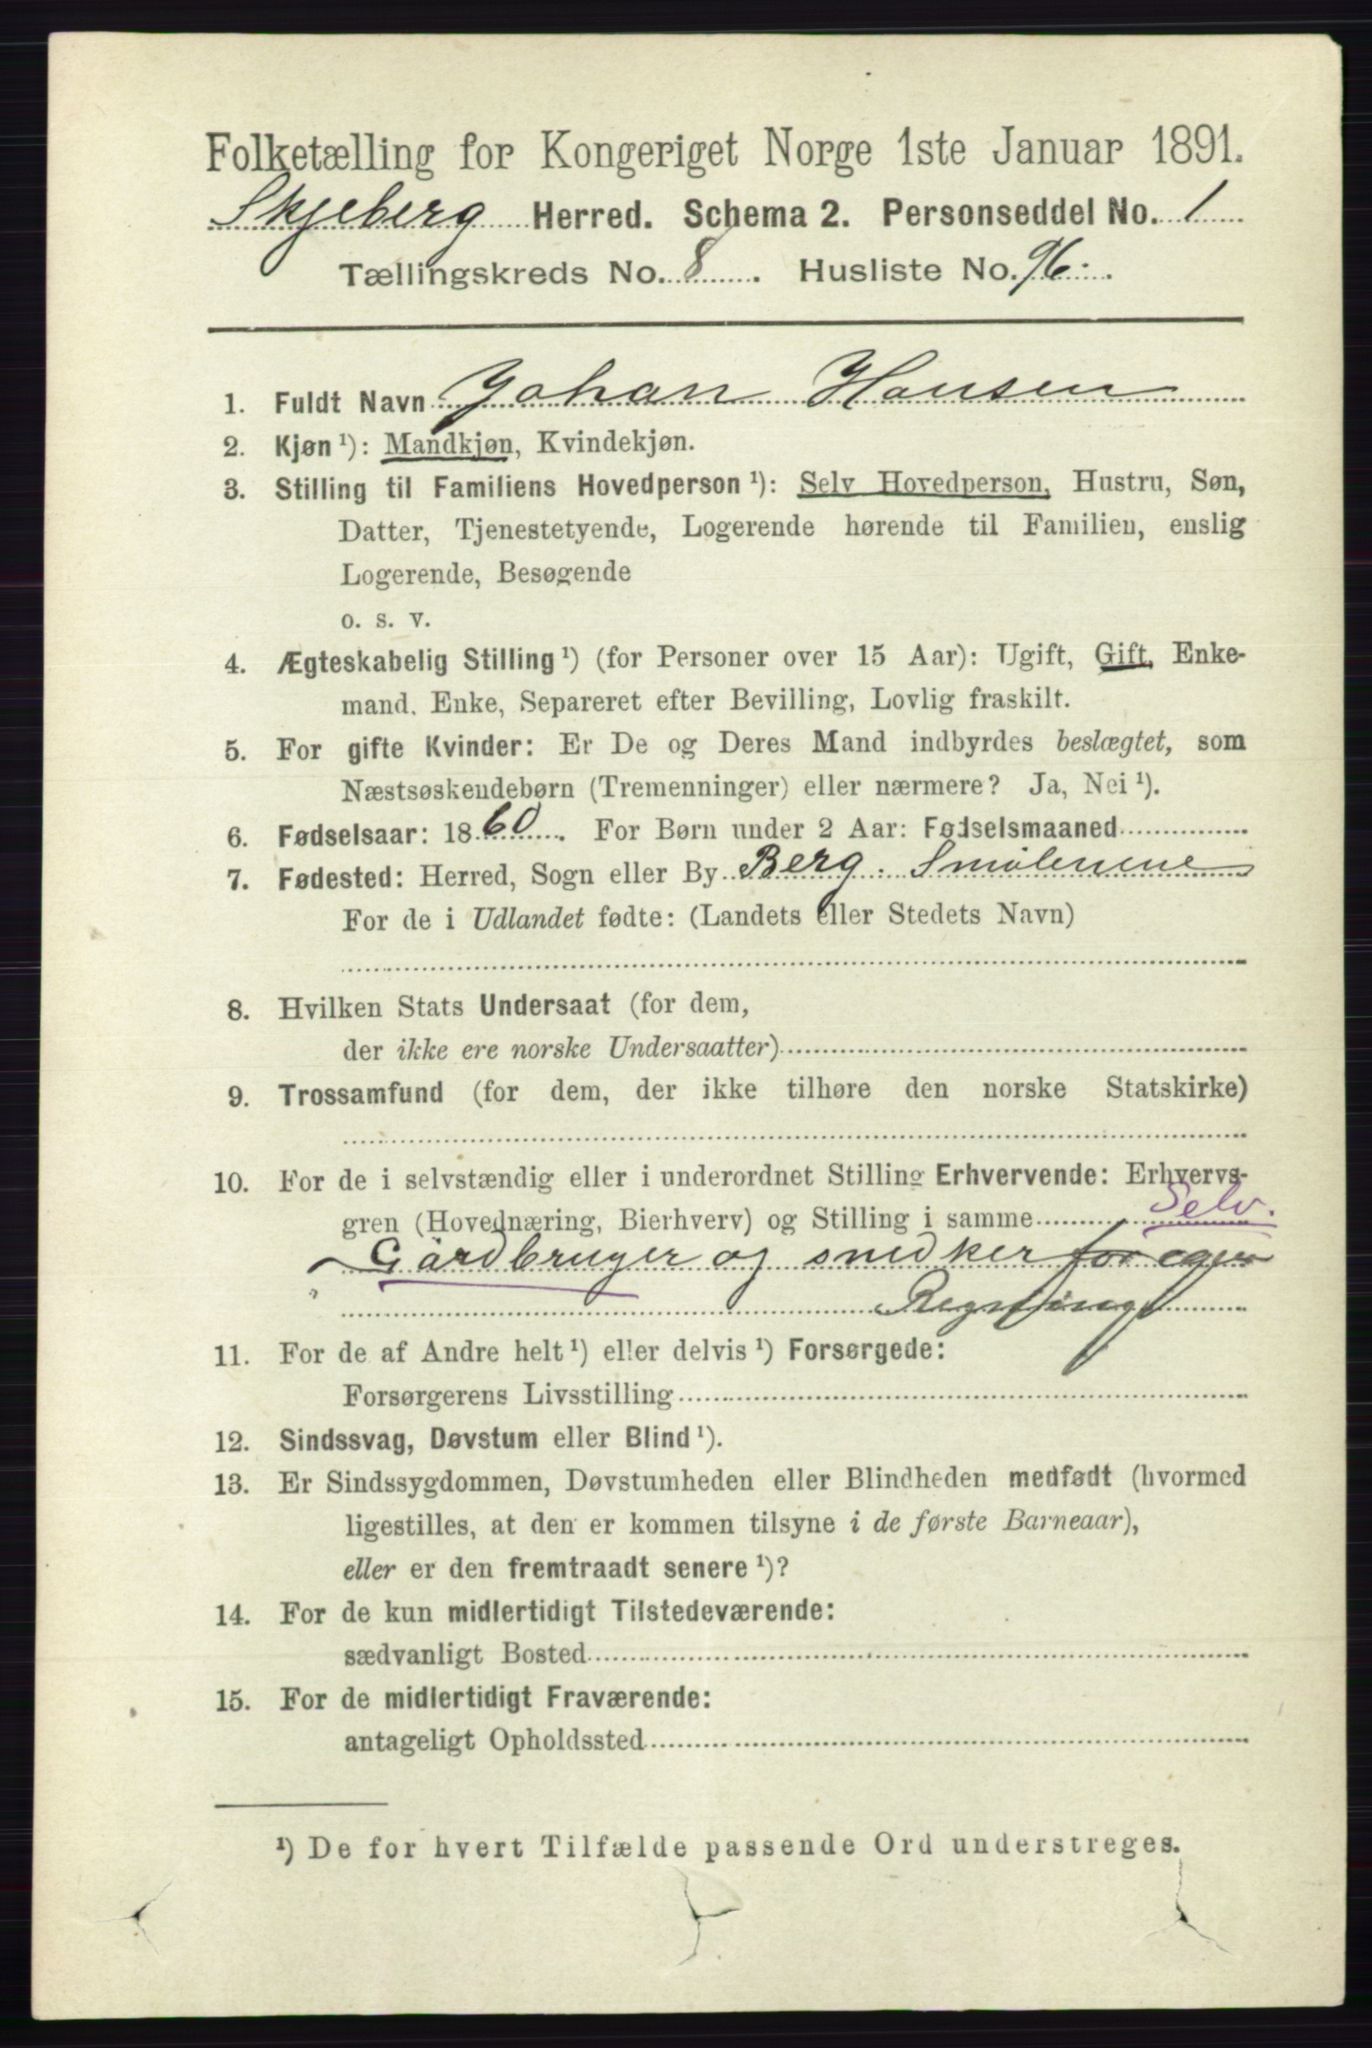 Folketælling for Kongeriget Norge 1ste Januar 1891.
Skjeberg Herred. Schema 2. Personseddel No. 1
Tællingskreds No. 8. Husliste No. 96.
1. Fuldt Navn Johan Hansen
2. Kjøn ¹): Mandkjøn, Kvindekjøn.
3. Stilling til Familiens Hovedperson ¹): Selv Hovedperson, Hustru, Søn,
Datter, Tjenestetyende, Logerende hørende til Familien, enslig
Logerende, Besøgende
o. s. v.
4. Ægteskabelig Stilling ¹) (for Personer over 15 Aar): Ugift, Gift, Enke-
mand, Enke, Separeret efter Bevilling, Lovlig fraskilt.
5. For gifte Kvinder: Er De og Deres Mand indbyrdes beslægtet, som
Næstsøskendebørn (Tremenninger) eller nærmere? Ja, Nei ¹).
6. Fødselsaar: 1860. For Børn under 2 Aar: Fødselsmaaned
7. Fødested: Herred, Sogn eller By Berg. Smålenene
For de i Udlandet fødte: (Landets eller Stedets Navn)
8. Hvilken Stats Undersaat (for dem,
der ikke ere norske Undersaatter)
9. Trossamfund (for dem, der ikke tilhøre den norske Statskirke)
10. For de i selvstændig eller i underordnet Stilling Erhvervende: Erhvervs-
gren (Hovednæring, Bierhverv) og Stilling i samme Selv.
Gårdbruger og snedker for egen
Regning
11. For de af Andre helt ¹) eller delvis ¹) Forsørgede:
Forsørgerens Livsstilling
12. Sindssvag, Døvstum eller Blind ¹).
13. Er Sindssygdommen, Døvstumheden eller Blindheden medfødt (hvormed
ligestilles, at den er kommen tilsyne i de første Barneaar),
eller er den fremtraadt senere ¹)?
14. For de kun midlertidigt Tilstedeværende:
sædvanligt Bosted
15. For de midlertidigt Fraværende:
antageligt Opholdssted
¹) De for hvert Tilfælde passende Ord understreges.